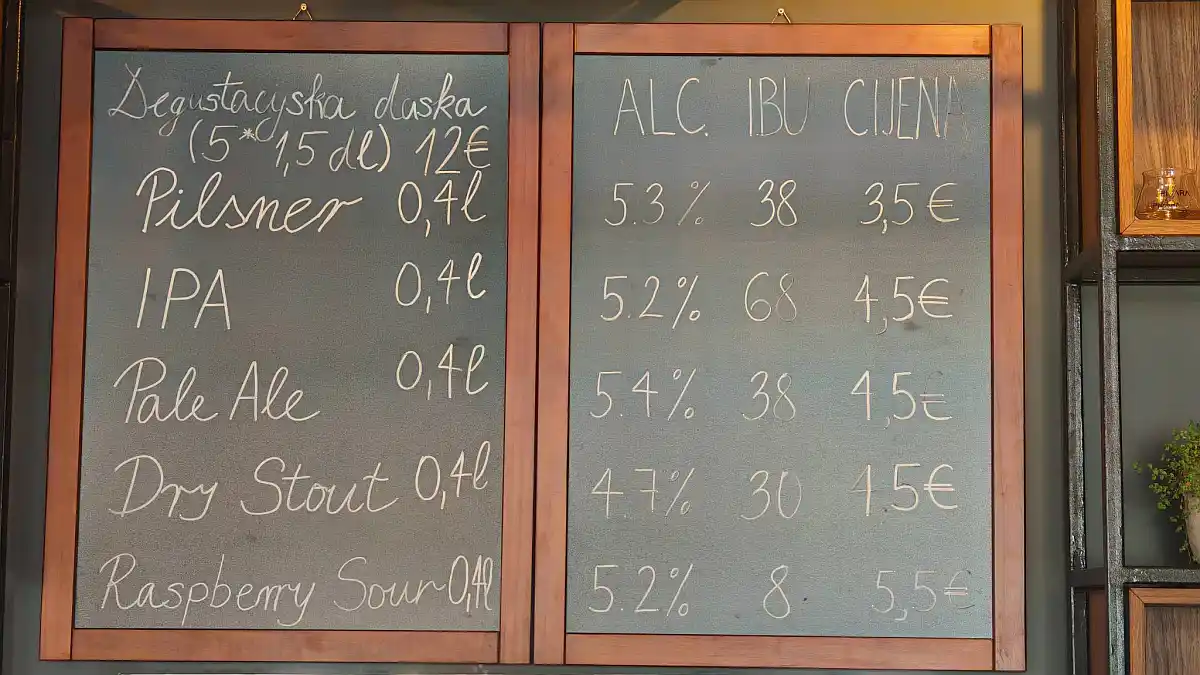 Degustacyska daska
(5*1,5 dl) 12€
ALC. IBU CIJENA
Pilsner 0,4l 5.3% 38 3,5€
IPA 0,4l 5.2% 68 4,5€
Pale Ale 0,4l 5.4% 38 4,5€
Dry Stout 0,4l 4.7% 30 4,5€
Raspberry Sour 0,4l 5.2% 8 5,5€